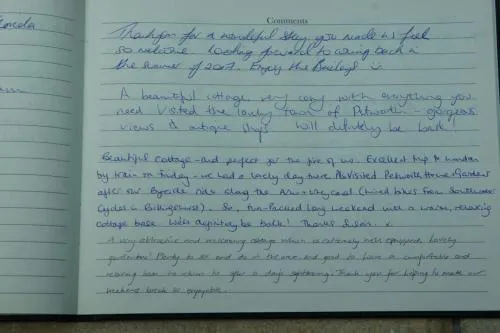 Comments
Thankyou for a wonderful stay, you made us feel
so welcome. Looking forward to coming back in
the summer of 2007. Enjoy the Baileys! :)
A beautiful cottage, very cosy with everything you
need. Visited the lovely town of Petworth - gorgeous
views & antique shops. Will definitely be back!
Beautiful cottage - and perfect for the five of us. Excellent trip to London
by train on Friday - we had a lovely day more. Visited Petworth House & Gardens
after our bicycle ride along the Arun + Wey canal (hired bikes from Southwater
Cycles in Billingshurst). So, fun-packed long weekend with a warm, relaxing
cottage base. We'll definitely be back! Thanks x
A very attractive and welcoming cottage which is extremely well equipped. Lovely
Plenty to see and do in the area and good to have a comfortable and
relaxing base to return to after a days sightseeing. Thank you for helping to make our
weekend break so enjoyable.